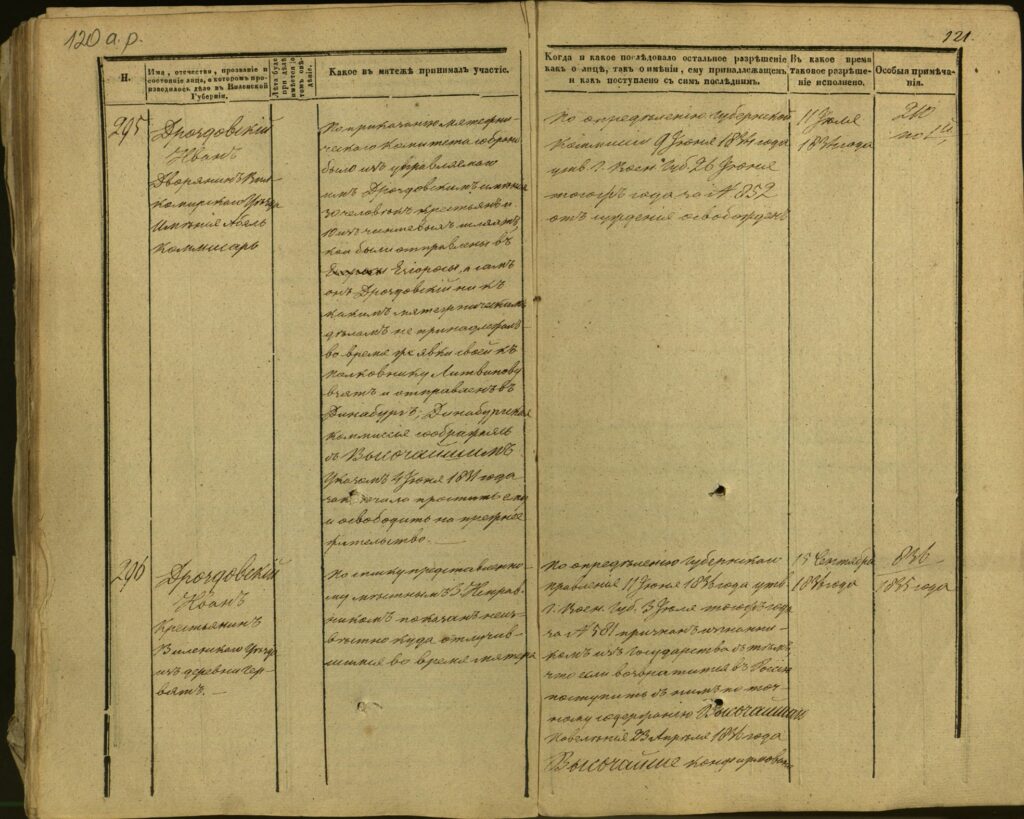 120 a.p.
121.
Н.
Имя, отечество, прозвание и
состояние лица, о котором про-
изводилось дѣло в Виленской
Губерніи.
Какое въ мятежѣ принималъ участіе.
Когда и какое послѣдовало остальное разрѣшеніе
какъ о лицѣ, такъ о имѣніи, ему принадлежащемъ
и какъ поступлено съ симъ послѣднимъ.
Въ какое время
таковое разрѣше-
ніе исполнено.
Особыя примѣча-
нія.
295
Дроздовскій
Иванъ
Дворянинъ Вил-
комирскаго Уѣзда
Имѣнія Абель
Коммисаръ
По приказанію мятежни-
ческаго Комитета собрано
было изъ управляемаго
имъ Дроздовскимъ имѣнія
30 человѣкъ крестьянъ и
10 изъ чиншевыхъ шляхтъ
кои были отправлены въ
Езіоросы, а самъ
онъ Дроздовскій ни къ
какимъ мятежническимъ
дѣламъ не принадлежалъ
во время же явки своей къ
полковнику Литвинову
взятъ и отправленъ въ
Динабургъ; Динабургская
коммиссія сообразясь
съ Высочайшимъ
Указомъ 4 Іюня 1831 года
заключала простить его
и освободить на прежнее
жительство.
По опредѣленію Губернской
Коммисіи 9 Іюня 1834 года
утв. Г. Воен. Губ. 26 Іюня
тогожъ года за № 852
отъ сужденія освобожденъ
11 Іюля
1834 года
212
по 1й
296
Дроздовскій
Иванъ
Крестьянинъ
Виленскаго Уѣзда
изъ деревни Чер-
вятъ.
По списку представленно-
му мѣстнымъ З. Исправ-
никомъ показанъ неиз-
вѣстно куда отлучив-
шимся во время мятежа
По опредѣленію Губернскаго
Правленія 11 Іюня 1836 года утв.
Г. Воен. Губ. 3 Іюля тогожъ года
за № 581 признанъ изгнанни-
комъ изъ Государства съ тѣмъ,
что если возвратится въ Россію
поступить съ нимъ по точ-
ному содержанію Высочайшаго
повелѣнія 23 Апрѣля
Высочайше конфирмован
13 Сентября
1836 года
836
1835 года